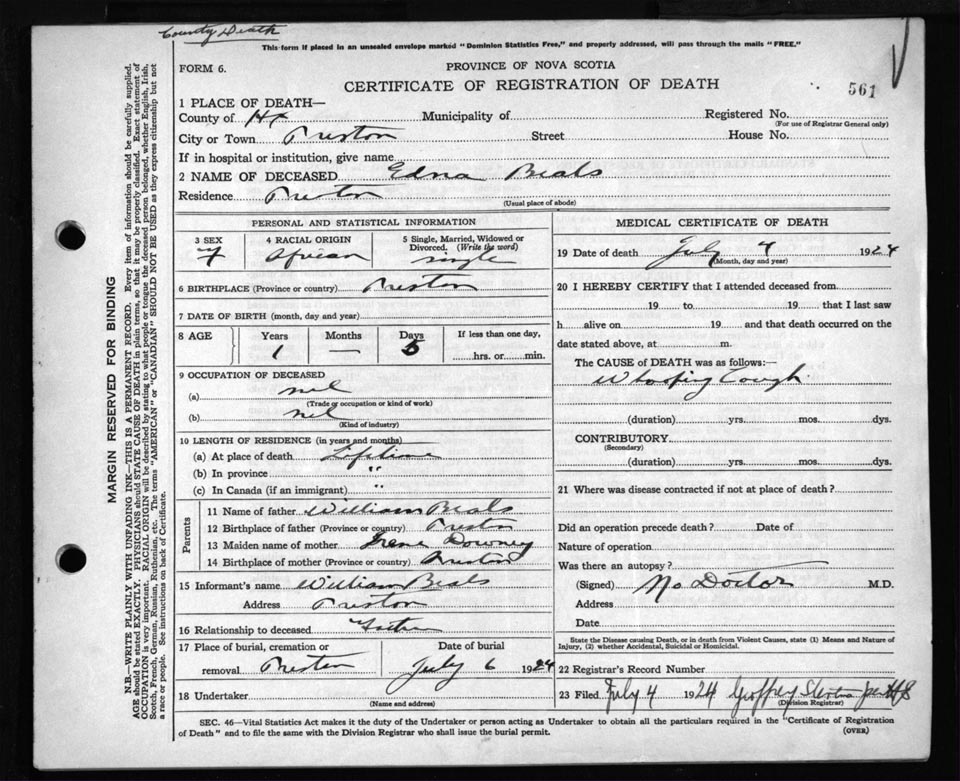 County Death
This form if placed in an unsealed envelope marked "Dominion Statistics Free," and properly addressed, will pass through the mails "FREE."
FORM 6.
PROVINCE OF NOVA SCOTIA
CERTIFICATE OF REGISTRATION OF DEATH
561
1 PLACE OF DEATH—
County of Hx Municipality of Registered No.
(For use of Registrar General only)
City or Town Preston Street House No.
If in hospital or institution, give name
2 NAME OF DECEASED Edna Beals
Residence Preston
(Usual place of abode)
PERSONAL AND STATISTICAL INFORMATION
3 SEX 4 RACIAL ORIGIN 5 Single, Married, Widowed or Divorced. (Write the word)
F African single
6 BIRTHPLACE (Province or country) Preston
7 DATE OF BIRTH (month, day and year)
8 AGE Years Months Days If less than one day,
1 — hrs. or min.
9 OCCUPATION OF DECEASED
(a) nil
(Trade or occupation or kind of work)
(b) nil
(Kind of industry)
10 LENGTH OF RESIDENCE (in years and months)
(a) At place of death Lifetime
(b) In province "
(c) In Canada (if an immigrant) "
Parents
11 Name of father William Beals
12 Birthplace of father (Province or country) Preston
13 Maiden name of mother Irene Downey
14 Birthplace of mother (Province or country) Preston
15 Informant's name William Beals
Address Preston
16 Relationship to deceased Father
17 Place of burial, cremation or removal Preston
Date of burial July 6 1924
18 Undertaker
(Name and address)
MEDICAL CERTIFICATE OF DEATH
19 Date of death July 4 1924
(Month, day and year)
20 I HEREBY CERTIFY that I attended deceased from
19 to 19 that I last saw
h alive on 19 and that death occurred on the
date stated above, at m.
The CAUSE of DEATH was as follows:—
Whooping Cough
(duration) yrs. mos. dys.
CONTRIBUTORY
(Secondary)
(duration) yrs. mos. dys.
21 Where was disease contracted if not at place of death?
Did an operation precede death? Date of
Nature of operation
Was there an autopsy?
(Signed) No Doctor M.D.
Address
Date
State the Disease causing Death, or in death from Violent Causes, state (1) Means and Nature of
Injury, (2) whether Accidental, Suicidal or Homicidal.
22 Registrar's Record Number
23 Filed July 4 1924 Geoffrey
(Division Registrar)
SEC. 46—Vital Statistics Act makes it the duty of the Undertaker or person acting as Undertaker to obtain all the particulars required in the "Certificate of Registration
of Death" and to file the same with the Division Registrar who shall issue the burial permit.
(OVER)
MARGIN RESERVED FOR BINDING
N.B.—WRITE PLAINLY WITH UNFADING INK—THIS IS A PERMANENT RECORD. Every item of information should be carefully supplied.
AGE should be stated EXACTLY. PHYSICIANS should STATE CAUSE OF DEATH in plain terms, so that it may be properly classified. Exact statement of
OCCUPATION is very important. RACIAL ORIGIN will be described by stating to what people or tongue the deceased person belonged, whether English, Irish,
Scotch, French, German, Russian, Ruthenian, etc. The terms "AMERICAN" or "CANADIAN" SHOULD NOT BE USED as they express citizenship but not
a race or people. See instructions on back of Certificate.